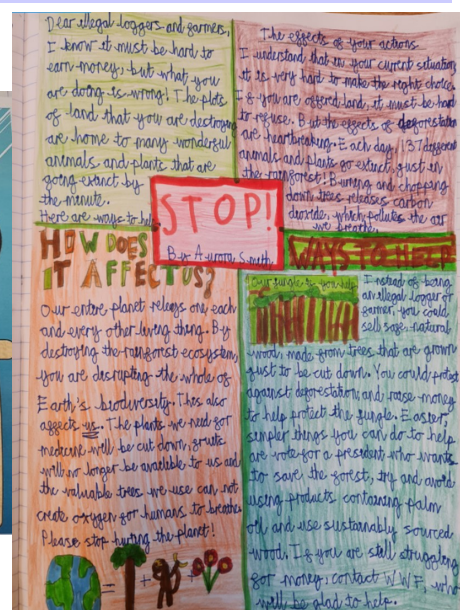 Dear illegal loggers and farmers,
I know it must be hard to
earn money, but what you
are doing is wrong! The plots
of land that you are destroying
are home to many wonderful
animals and plants that are
going extinct by
the minute.
Here are ways to help
The effects of your actions
I understand that in your current situation
it is very hard to make the right choice.
If you are offered land, it must be hard
to refuse. But the effects of deforestation
are heartbreaking. Each day, 137 different
animals and plants go extinct, just in
the rainforest! Burning and chopping
down trees releases carbon
dioxide, which pollutes the air
we breathe.
STOP!
By Aurora Smith
HOW DOES
IT AFFECT US?
Our entire planet releys one each
and every other living thing. By
destroying the rainforest ecosystem,
you are desrupting the whole of
Earth's biodiversity. This also
affects us. The plants we need for
medicine will be cut down, fruits
will no longer be available to us and
the valuable trees we use can not
create oxygen for humans to breathe.
Please stop hurting the planet!
= + +
WAYS TO HELP
Our jungle is you help
Instead of being
an illegal logger or
farmer, you could
sell safe, natural
wood, made from trees that are grown
just to be cut down. You could protest
against deforestation and raise money
to help protect the jungle. Easier,
simpler things you can do to help
are vote for a president who wants
to save the forest, try and avoid
using products containing palm
oil and use sustainably sourced
wood. If you are still struggling
for money, contact WWF, who
will be glad to help.